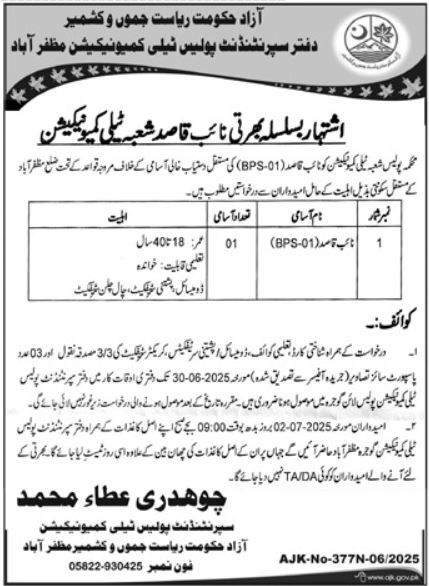 آزاد حکومت ریاست جموں و کشمیر
دفتر سپرنٹنڈنٹ پولیس ٹیلی کمیونیکیشن مظفر آباد
اشتہار بسلسلہ بھرتی نائب قاصد شعبہ ٹیلی کمیونیکیشن
محکمہ پولیس شعبہ ٹیلی کمیونیکیشن کو نائب قاصد (BPS-01) کی مستقل دستیاب خالی آسامی کے خلاف مروجہ قواعد کے تحت ضلع مظفر آباد
کے مستقل سکونتی بذیل اہلیت کے حامل امیدواران سے درخواستیں مطلوب ہیں۔
نمبر شمار نام آسامی تعداد آسامی اہلیت
1 نائب قاصد (BPS-01) 01 عمر: 18 تا 40 سال
تعلیمی قابلیت: خواندہ
ڈومیسائل، پشتنی سرٹیفکیٹ، چال چلن سرٹیفکیٹ
کوائف:۔
۱۔ درخواست کے ہمراہ شناختی کارڈ، تعلیمی کوائف، ڈومیسائل / پشتنی سرٹیفکیٹس، کریکٹر سرٹیفکیٹ کی 3/3 مصدقہ نقول اور 03 عدد
پاسپورٹ سائز تصاویر (جریدہ آفیسر سے تصدیق شدہ) مورخہ 30-06-2025 تک دفتری اوقات کار میں دفتر سپرنٹنڈنٹ پولیس
ٹیلی کمیونیکیشن پولیس لائن گوجرہ میں موصول ہونا ضروری ہیں۔ مقررہ تاریخ کے بعد موصول ہونے والی درخواست زیر غور نہیں لائی جائے گی۔
۲۔ امیدواران مورخہ 02-07-2025 بروز بدھ بوقت 09:00 بجے صبح اپنے اصل کاغذات کے ہمراہ دفتر سپرنٹنڈنٹ پولیس
ٹیلی کمیونیکیشن گوجرہ مظفر آباد حاضر آئیں گے جہاں پر ان کے اصل کاغذات کی چھان بین کے علاوہ اسی روز ٹیسٹ لیا جائے گا۔ بھرتی کے
لئے آنے والے امیدواران کو کوئی TA/DA نہیں دیا جائے گا۔
چوھدری عطاء محمد
سپرنٹنڈنٹ پولیس ٹیلی کمیونیکیشن
آزاد حکومت ریاست جموں و کشمیر مظفر آباد
فون نمبر 05822-930425
AJK-No-377N-06/2025
www.ajk.gov.pk